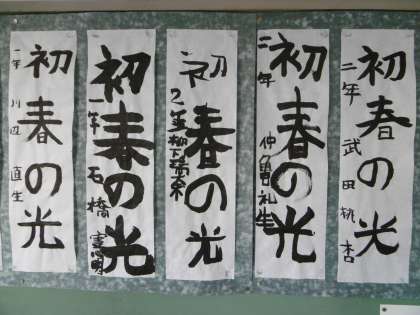 初春の光
二年 武田 桃杏
初春の光
二年
初春の光
2年 柳下
初春の光
一年 石橋
初春の光
一年 川辺 直生